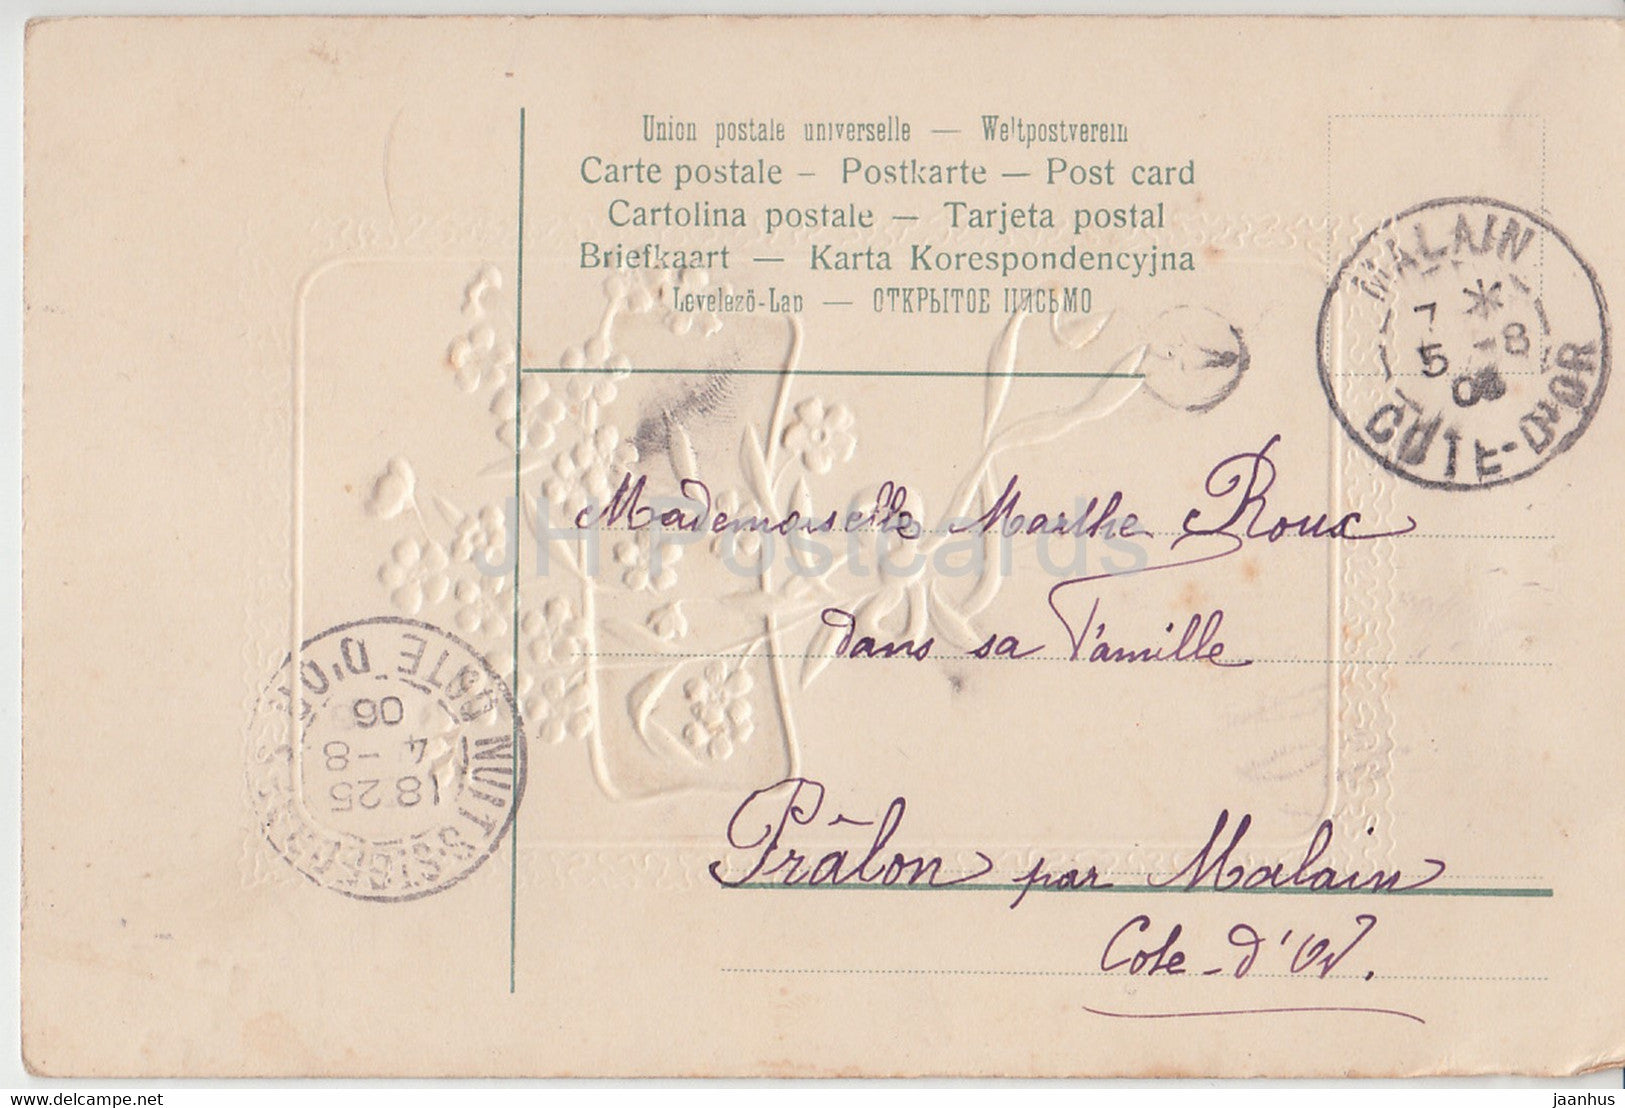 Union postale universelle — Weltpostverein
Carte postale – Postkarte — Post card
Cartolina postale — Tarjeta postal
Briefkaart — Karta Korespondencyjna
Levelezö-Lap — ОТКРЫТОЕ ПИСЬМО
MALAIN
7 *
5 -8
06
COTE-D'OR
Mademoiselle Marthe Roux
dans sa Famille
Prâlon par Malain
Cote-d'Or.
NUITS-S-GEORGES
18 25
4 -8
06
COTE D'OR
JH Postcards
delcampe.net
jaanhus